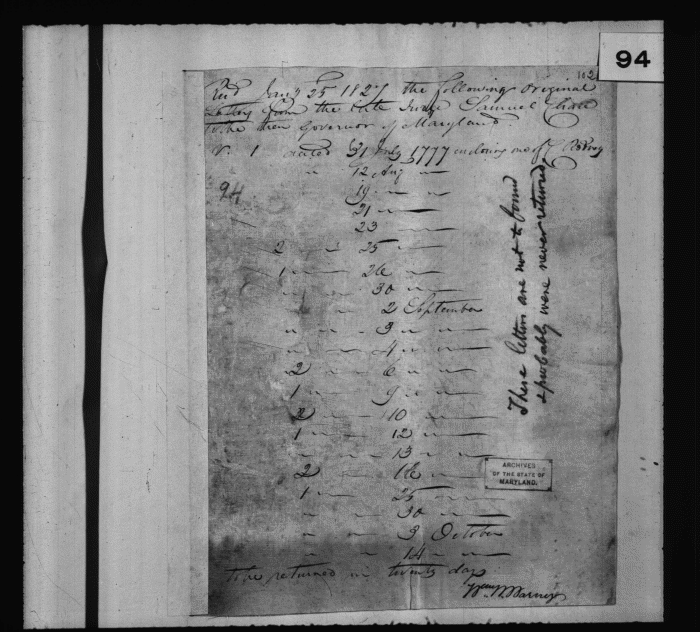 94
102
Recd Jany 25 1827 the following Original
Letters from the late Judge Samuel Chase
to the then Governor of Maryland
N. 1 dated 31 July 1777 enclosing one of
" 12 Aug "
94
19 "
21 "
23
2 " 25 "
1 " 26 "
" 30 "
" 2 September
" " 3 "
" " 4 "
2 " 6 "
1 " 9 "
2 " 10 "
1 " 12 "
" " 13 "
2 " 16 "
1 " 25 "
" " 30 "
" " 3 October
" " 14 "
to be returned in twenty days
These letters are not to found
& probably were never returned
ARCHIVES
OF THE STATE OF
MARYLAND.